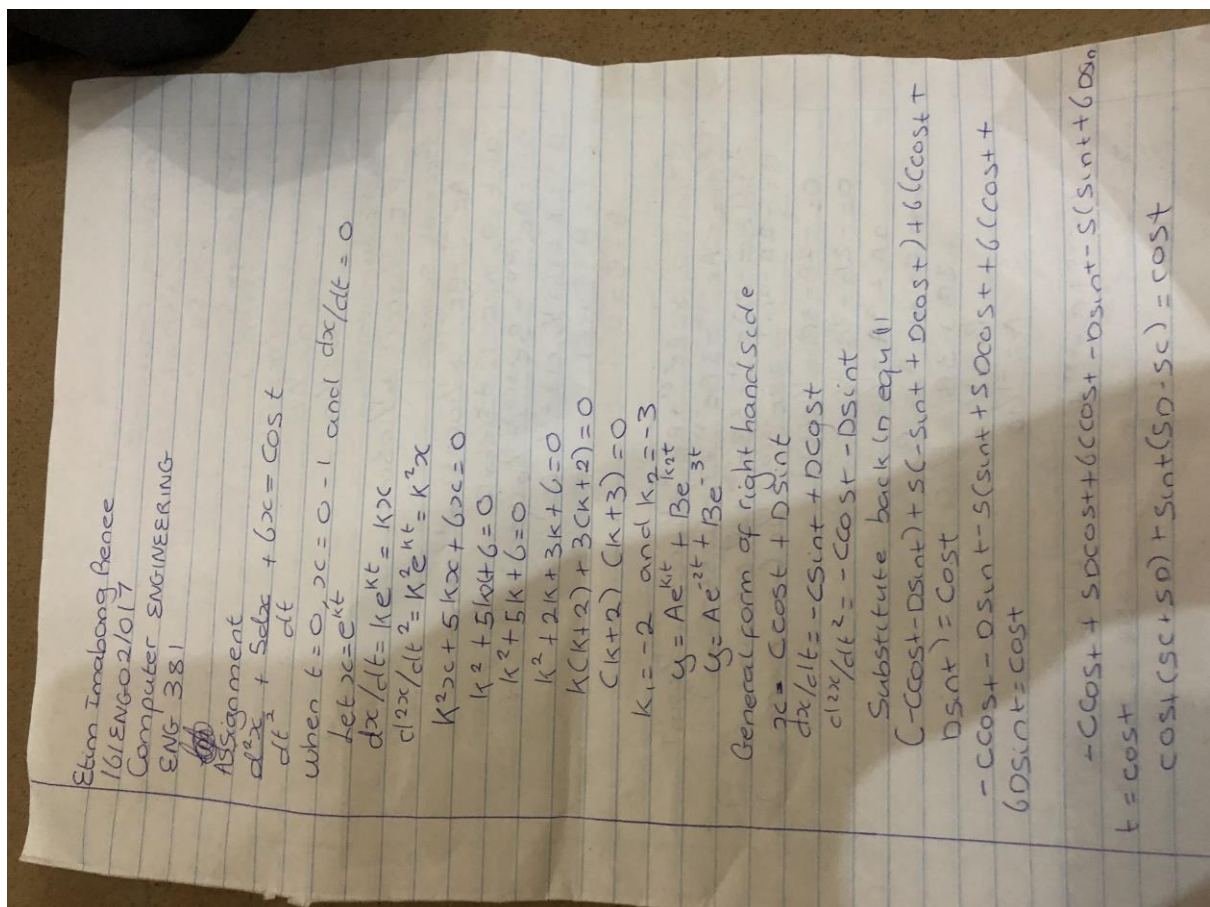 Etim Imabong Renee
16/ENG02/017
Computer ENGINEERING
ENG 381
ASSignment
d²x/dt² + 5dx/dt + 6x = Cos t
when t = 0, x = 0 - 1 and dx/dt = 0
Let x = e^kt
dx/dt = ke^kt = kx
d²x/dt² = k²e^kt = k²x
k²x + 5kx + 6x = 0
k² + 5k + 6 = 0
k² + 5k + 6 = 0
k² + 2k + 3k + 6 = 0
k(k+2) + 3(k+2) = 0
(k+2) (k+3) = 0
k₁ = -2 and k₂ = -3
y = Ae^k₁t + Be^k₂t
y = Ae^-2t + Be^-3t
General form of right hand side
x = Ccost + Dsint
dx/dt = -csint + Dcost
d²x/dt² = -Ccost - Dsint
Substitute back in equ
(-Ccost - Dsint) + 5(-sint + Dcost) + 6(Ccost +
Dsint) = cost
-Ccost - Dsint - 5Csint + 5Dcost + 6Ccost +
6Dsint = cost
-Ccost + 5Dcost + 6Ccost - Dsint - 5Csint + 6Dsin
t = cost
cost(5c + 5D) + sint(5D - 5c) = cost